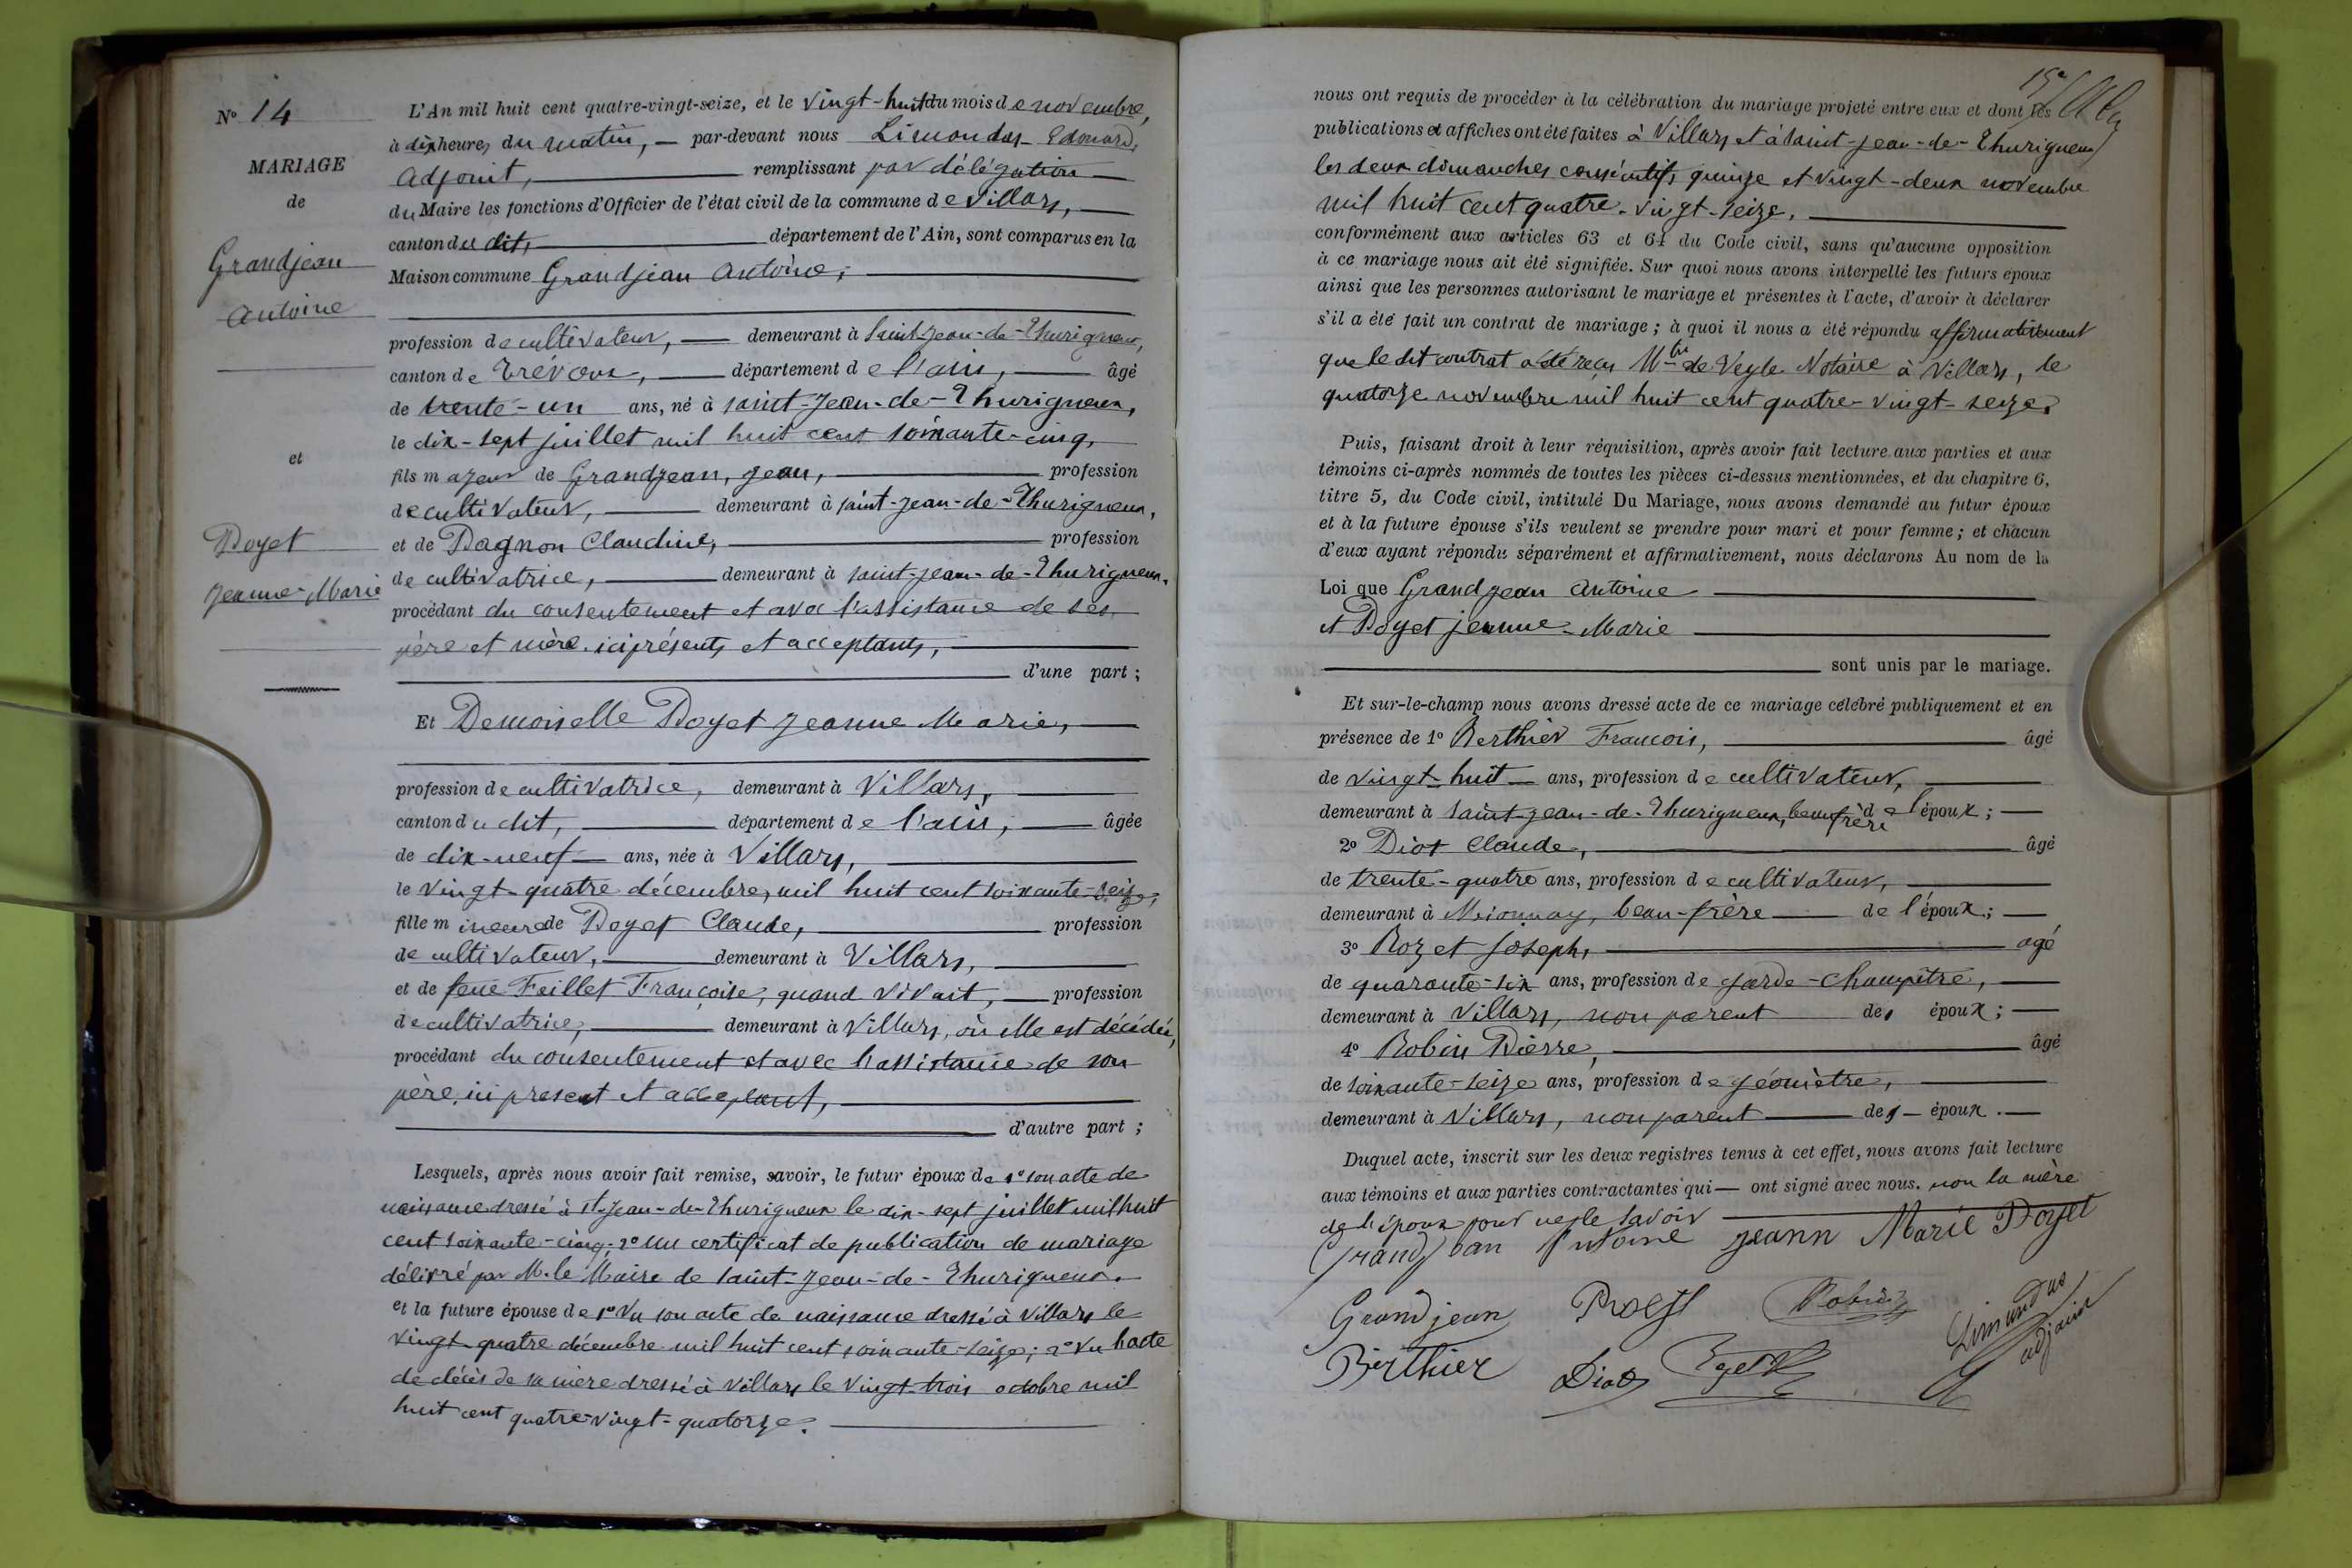 N° 14
MARIAGE
de
Grandjean
Antoine
et
Poyet
Jeanne-Marie
L'An mil huit cent quatre-vingt-seize, et le vingt-huit du mois de novembre,
à dix heures du matin, — par-devant nous Limandas Edouard,
Adjoint, remplissant par délégation
du Maire les fonctions d'Officier de l'état civil de la commune de Villars,
canton du dit, département de l'Ain, sont comparus en la
Maison commune Grandjean Antoine,
profession de cultivateur, — demeurant à Saint-Jean-de-Thurigneux,
canton de Trévoux, — département de l'ain, — âgé
de trente-un ans, né à saint-Jean-de-Thurigneux,
le dix-sept juillet mil huit cent soixante-cinq,
fils majeur de Grandjean, Jean, profession
de cultivateur, demeurant à saint-Jean-de-Thurigneux,
et de Pagnon Claudine, profession
de cultivatrice, demeurant à saint-Jean-de-Thurigneux,
procédant du consentement et avec l'assistance de ses
père et mère, ici présents et acceptants,
d'une part ;
Et Demoiselle Poyet Jeanne Marie,
profession de cultivatrice, demeurant à Villars,
canton du dit, département de l'ain, — âgée
de dix-neuf — ans, née à Villars,
le vingt-quatre décembre, mil huit cent soixante-seize,
fille mineure de Poyet Claude, profession
de cultivateur, demeurant à Villars,
et de feue Feillet Françoise, quand vivait, — profession
de cultivatrice, demeurant à Villars, où elle est décédée,
procédant du consentement et avec l'assistance de son
père, ici présent et acceptant,
d'autre part ;
Lesquels, après nous avoir fait remise, savoir, le futur époux de 1° son acte de
naissance dressé à St-Jean-de-Thurigneux le dix-sept juillet mil huit
cent soixante-cinq; 2° un certificat de publication de mariage
délivré par M. le Maire de Saint-Jean-de-Thurigneux.
et la future épouse de 1° Vu son acte de naissance dressé à Villars le
vingt-quatre décembre mil huit cent soixante-seize; 2° Vu l'acte
de décès de sa mère dressé à Villars le vingt-trois octobre mil
huit cent quatre-vingt-quatorze.
15e
nous ont requis de procéder à la célébration du mariage projeté entre eux et dont les
publications et affiches ont été faites à Villars et à Saint-Jean-de-Thurigneux
les deux dimanches consécutifs quinze et vingt-deux novembre
mil huit cent quatre-vingt-seize,
conformément aux articles 63 et 64 du Code civil, sans qu'aucune opposition
à ce mariage nous ait été signifiée. Sur quoi nous avons interpellé les futurs époux
ainsi que les personnes autorisant le mariage et présentes à l'acte, d'avoir à déclarer
s'il a été fait un contrat de mariage ; à quoi il nous a été répondu affirmativement
que le dit contrat a été reçu Mtre de Veyle Notaire à Villars, le
quatorze novembre mil huit cent quatre-vingt-seize.
Puis, faisant droit à leur réquisition, après avoir fait lecture aux parties et aux
témoins ci-après nommés de toutes les pièces ci-dessus mentionnées, et du chapitre 6,
titre 5, du Code civil, intitulé Du Mariage, nous avons demandé au futur époux
et à la future épouse s'ils veulent se prendre pour mari et pour femme ; et chacun
d'eux ayant répondu séparément et affirmativement, nous déclarons Au nom de la
Loi que Grandjean Antoine
et Poyet Jeanne-Marie
sont unis par le mariage.
Et sur-le-champ nous avons dressé acte de ce mariage célébré publiquement et en
présence de 1° Berthier François, âgé
de vingt-huit — ans, profession de cultivateur,
demeurant à Saint-Jean-de-Thurigneux, beau-frère de l'époux ; —
2° Diot Claude, âgé
de trente-quatre ans, profession de cultivateur,
demeurant à Mionnay, beau-frère — de l'époux ; —
3° Rozet Joseph, agé
de quarante-six ans, profession de garde-champêtre,
demeurant à Villars, non parent des époux ; —
4° Robin Pierre, âgé
de soixante-seize ans, profession de géomètre,
demeurant à Villars, non parent — des — époux. —
Duquel acte, inscrit sur les deux registres tenus à cet effet, nous avons fait lecture
aux témoins et aux parties contractantes qui — ont signé avec nous. non la mère
de l'époux pour ne le savoir
Grandjean Antoine Jeann Marie Poyet
Grandjean Robin
Limandas
adjoint
Berthier Diot